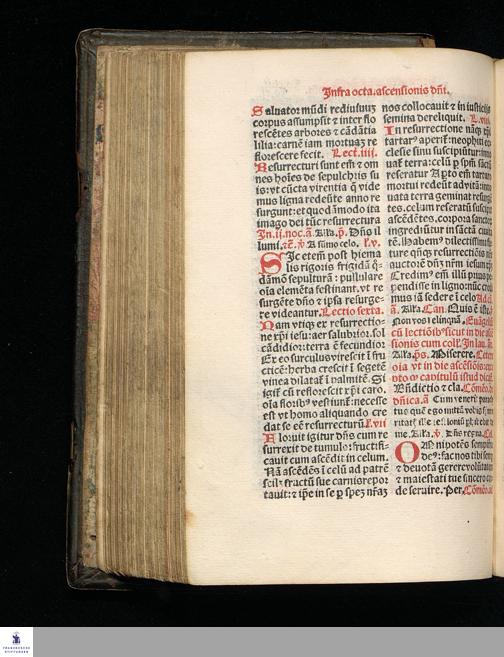 Infra octa. ascensionis dñi.
Saluator mũdi rediuiuuʒ
corpus assumpsit ⁊ inter flo
rescẽtes arbores ⁊ cãdẽtia
lilia: carnẽ iam mortuaʒ re
florescere fecit. Lect. iiii.
Resurrecturi sunt em̃ ⁊ om
nes hoĩes de sepulchris su
is: vt cũcta virentia q̃ vide
mus ligna redeũte anno re
surgunt: et quẽdãmodo ita
imago dei tũc resurrectura
In .ii. noc. añ. Alľa. p̃. Dñs il
lumi. ⁊c̃. v̓. A sũmo celo. l. v.
Sic etem̃ post hiema
lis rigoris frigidã q̃
dãmõ sepulturã: pullulare
oĩa elemẽta festinant. vt re
surgẽte dño ⁊ ipsa resurge-
te videantur. Lectio sexta.
Nam vtiqʒ ex resurrectio-
ne xp̃i iesu: aer salubrior. sol
cãdidior: terra ẽ fecundior
Ex eo surculus virescit ĩ fru
cticẽ: herba crescit ĩ segetẽ
vinea dilataƭ ĩ palmitẽ. Si
igiƭ cũ reflorescit xp̃i caro.
oĩa florib⁹ vestiunƭ: necesse
est vt homo aliquando cre
dat se eẽ resurrecturũ. l. vii
Floruit igitur dñs cum re
surrexit de tumulo: fructifi-
cauit cum ascẽdit in celum.
Nã ascẽdẽs ĩ celũ ad patrẽ
scilʒ fructũ sue carnis repor
tauit: ⁊ ip̃e in se p̱ speʒ nr̃aʒ
nos collocauit ⁊ in iusticijs
semina dereliquit. L. viii.
In resurrectione nãqʒ xp̃i
tartar⁹ aperiƭ: neophiti ec
clesie sinu suscipiũtur:
uaƭ terra: celũ p̱ spm̃ sãctũ
reseratur Aꝑto em̃ tartaro
mortui redeũt ad vitã: inno
uata terra geminat resurgẽ
tes. celum reseratũ suscipit
ascẽdẽtes. corpora sanctoꝝ
ingrediũtur in sãctã ciuita
tẽ. Habem⁹ dilectissimi
ture quoqʒ resurrectiõis
auctorẽ dñʒ nr̃m iesum xp̃m
Credim⁹ em̃ illũ prius
pendisse in ligno: nũc credi
mus iã sedere ĩ celo Ad .iii.
añ. Alľa. Can. Quis ẽ iste.
Non vos relinquã. Euãgeliũ
cũ lectiõib⁹ sicut in die ascẽ
sionis cum colľ. In lau. añ.
Alľa. p̃s. Miserere. Cetera
oĩa vt in die ascẽsiõis: exce
pto qʒ capitulũ istud dicitur
Bñdictio ⁊ c̃la. Cõmẽo. de
dñica. añ. Cum venerit para
tus quẽ ego mittã vobis spm̃
me. Alľa. v̓. Dñs regna. Col.
Omnipotẽs sempiterne
de⁹: fac nos tibi semper
⁊ deuotã gerere voluntatem
⁊ maiestati tue sincero corde
deseruire. Per. Cõmẽo.
FRANCKESCHE
STIFTUNGEN